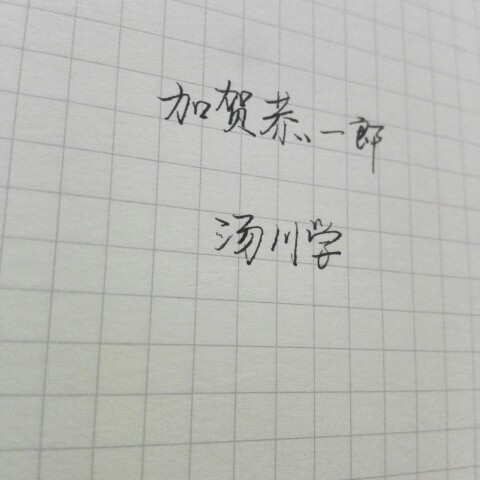 加贺恭一郎
汤川学